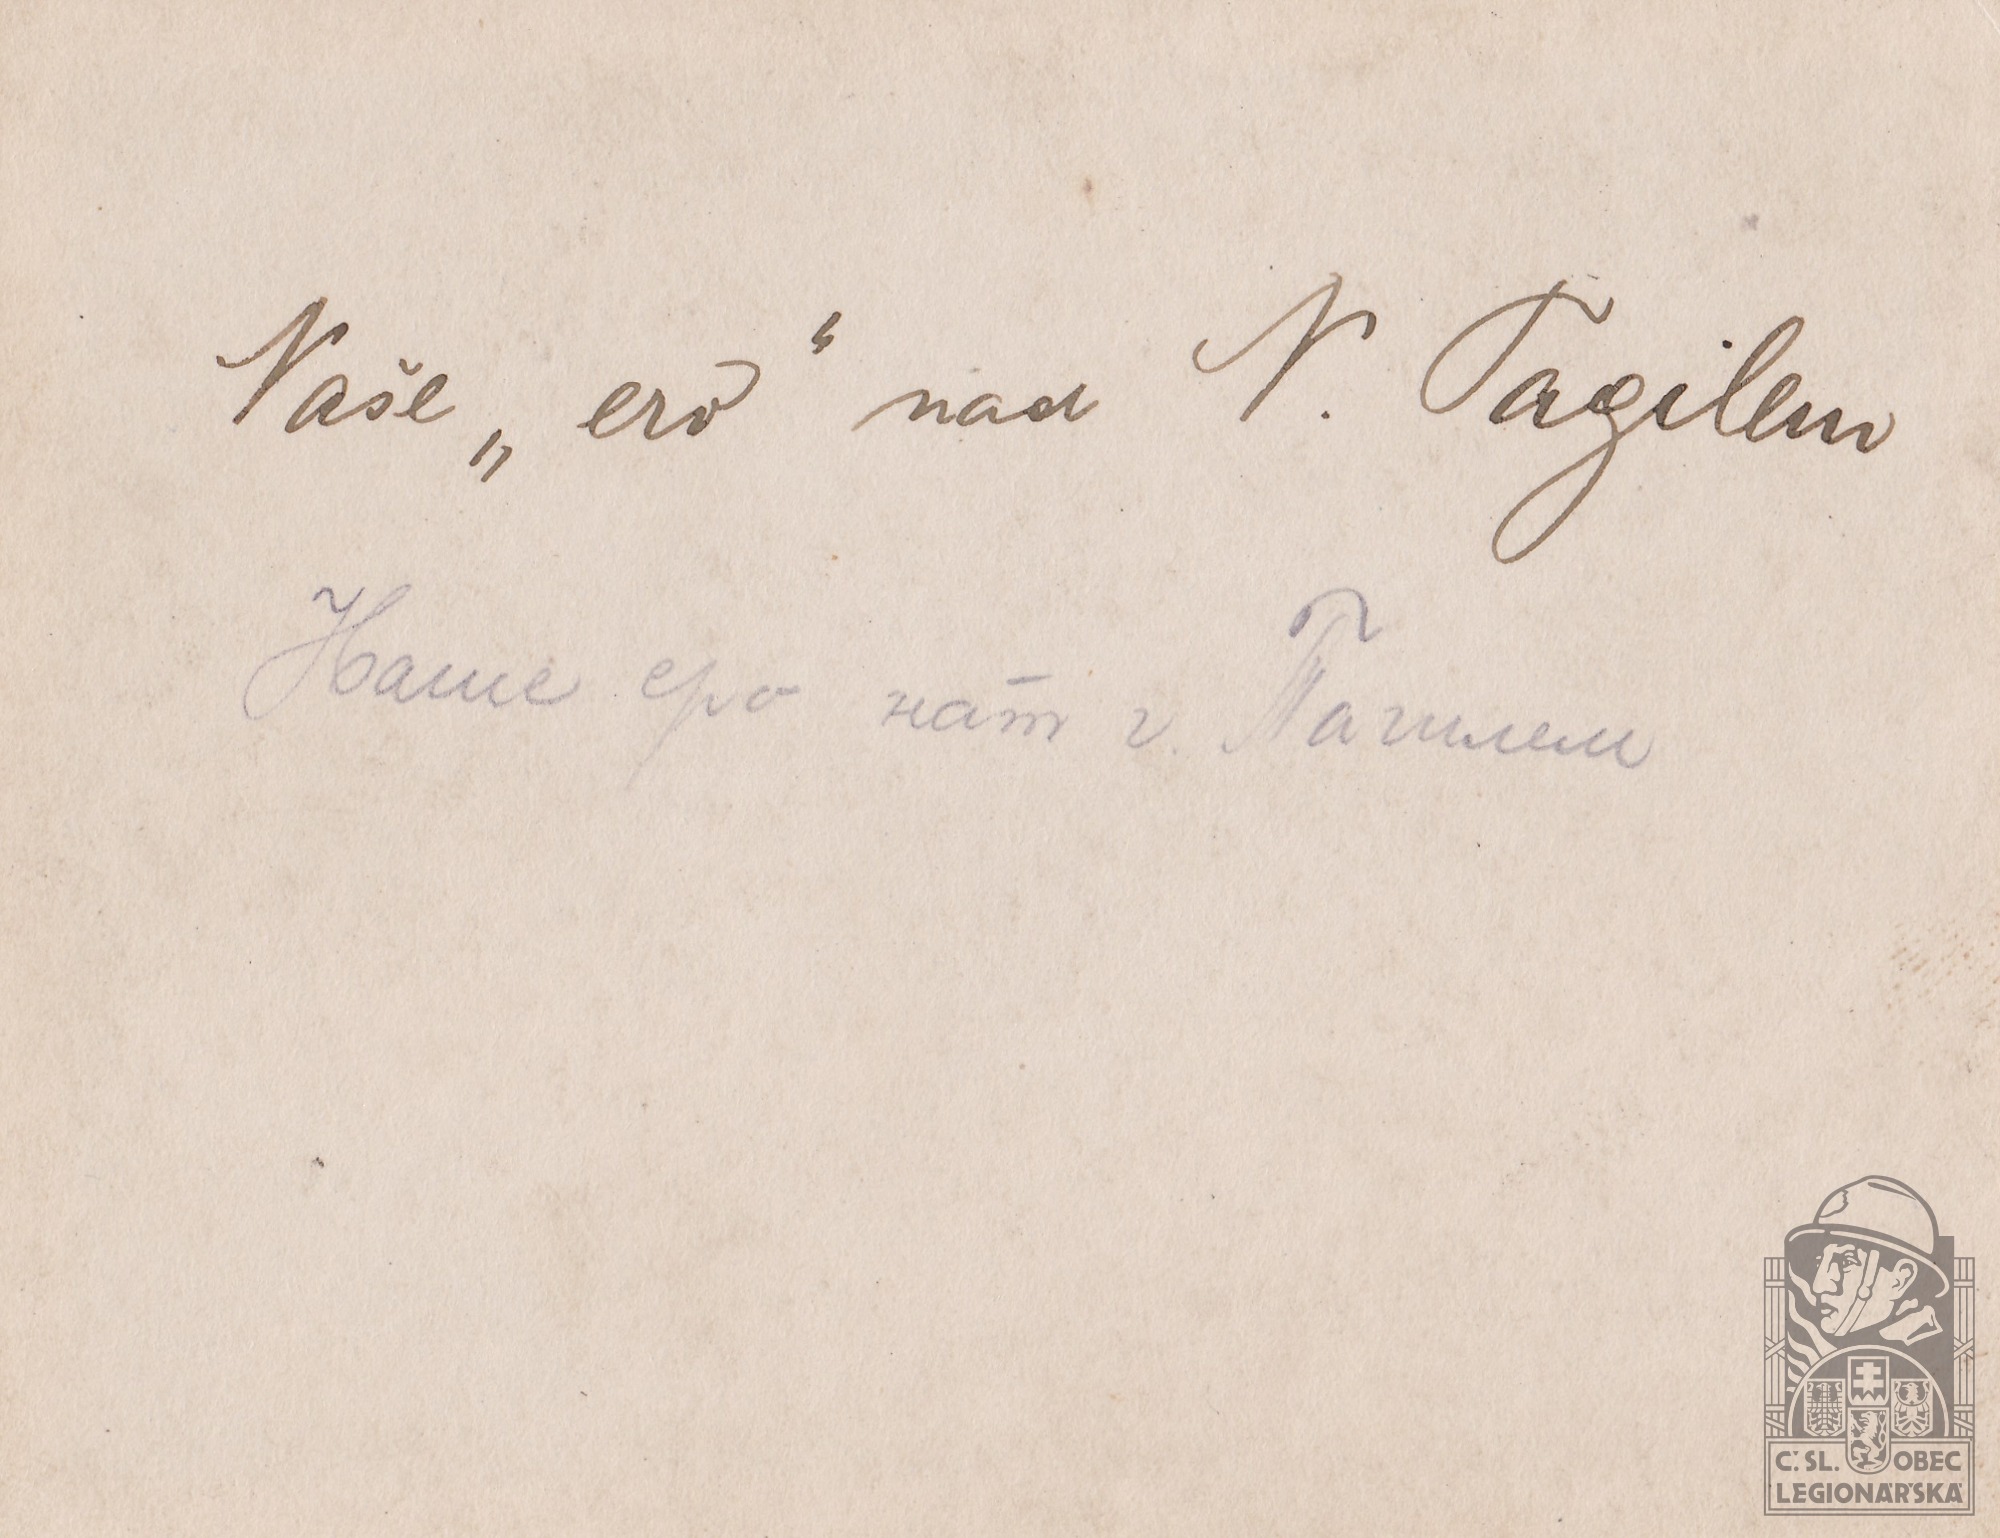 Naše „ ero “ nad N. Tagilem
Наше еро нат г. Тагилем
Č. SL. OBEC
LEGIONÁŘSKÁ